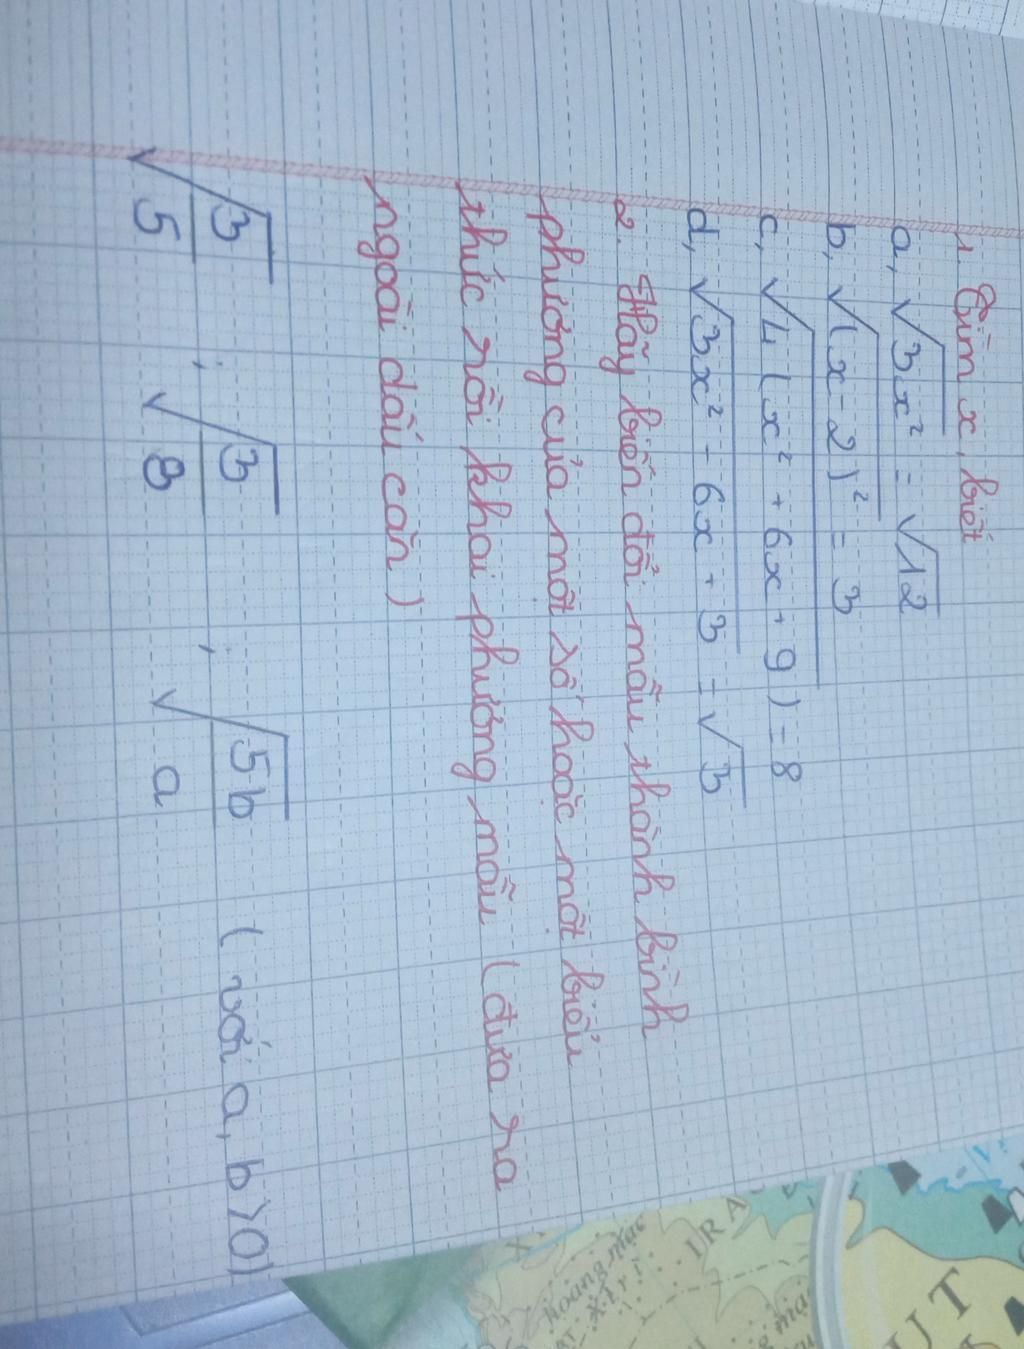 1 Tìm x, biết
a, √3x² = √12
b, √(x-2)² = 3
c, √4(x² + 6x + 9) = 8
d, √3x² - 6x + 3 = √3
2. Hãy biến đổi mẫu thành bình
phương của một số hoặc một biểu
thức rồi khai phương mẫu (đưa ra
ngoài dấu căn)
√3/5 ; √3/8 ; √5b/a (với a, b > 0)
IRA
hoang mạc
X.I.R.I
UT